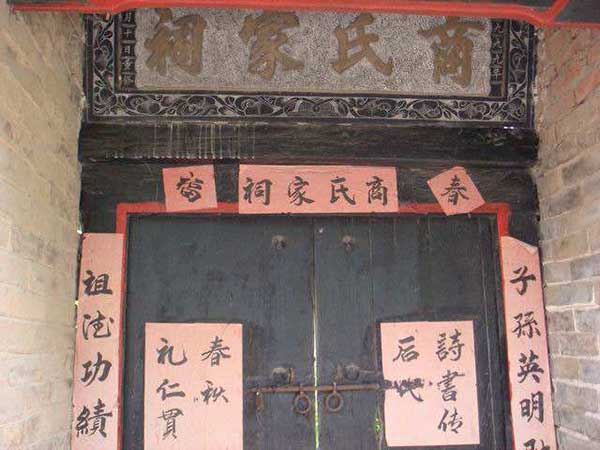 商氏家祠
春
商氏家祠
子孫英明
祖德功績
詩書传
后代
春秋
礼仁貫